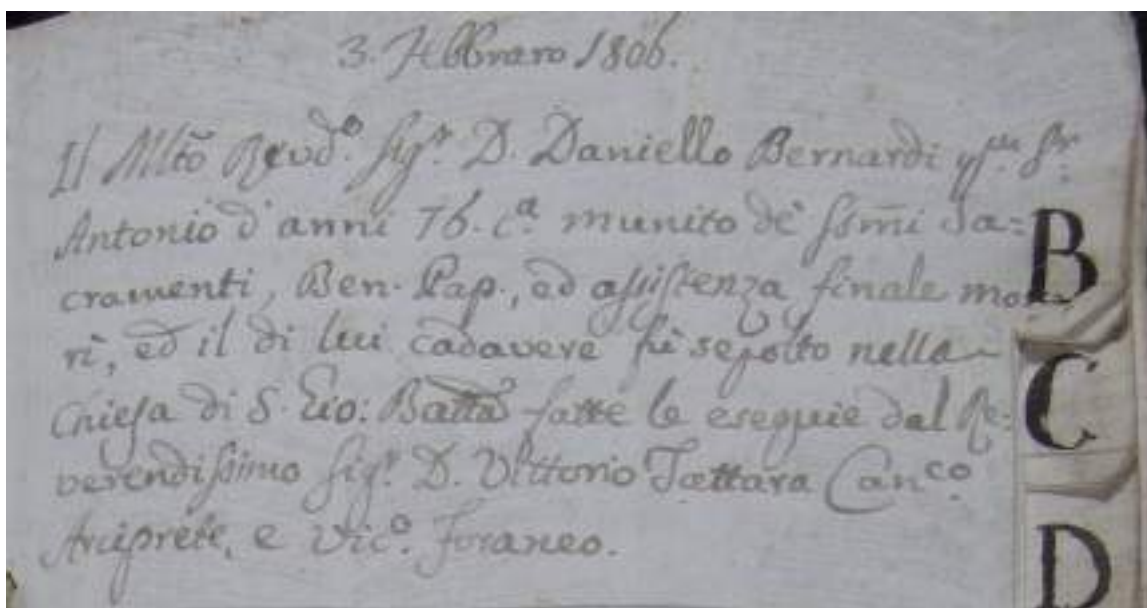 3. Febbraro 1806.
Il Mltõ Revd.º Sigr. D. Daniello Bernardi qm. Sr.
Antonio d'anni 76. c.ª munito de' ssm̃i Sa=
B
cramenti, Ben. Pap., ed assistenza finale mo=
rì, ed il di lui cadavere fù sepolto nella
Chiesa di S. Gio: Batta fatte le esequie dal Re:
C
verendissimo Sigr. D. Vittorio Tattara Can.co
Arciprete, e Vic.º Foraneo.
D